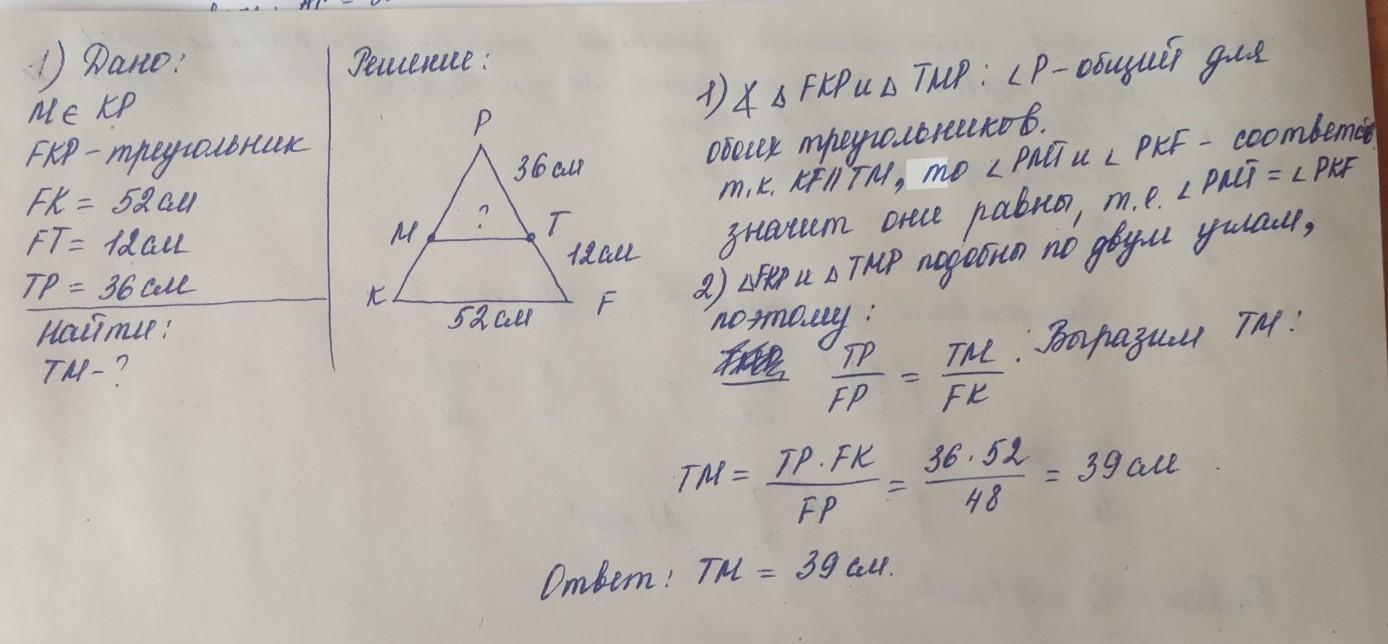 1) Дано:
M ∈ KP
FKP – треугольник
FK = 52 см
FT = 12 см
TP = 36 см
Найти:
TM – ?
Решение:
P
36 см
?
M
T
12 см
K
F
52 см
1) ∡ △ FKP и △ TMP : ∠P – общий для
обоих треугольников.
т.к. KF || TM, то ∠PMT и ∠PKF – соответств.
значит они равны, т.е. ∠PMT = ∠PKF
2) △FKP и △TMP подобны по двум углам,
поэтому:
TP/FP = TM/FK . Выразим TM :
TM = TP · FK/FP = 36 · 52/48 = 39 см
Ответ: TM = 39 см.